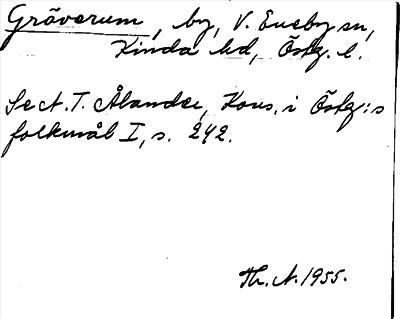 Gräverum, by, V. Eneby sn,
Kinda hd, Östg. l.
Se A. T. Ålander, Kons. i Östg:s
folkmål I, s. 242.
Th. A. 1955.